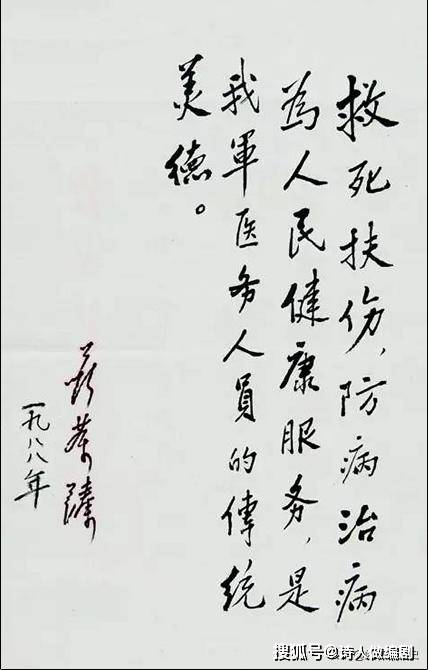 救死扶伤,防病治病
為人民健康服务,是
我軍医务人員的傳統
美德。
聂荣臻
一九八八年
搜狐号@诗人做编剧